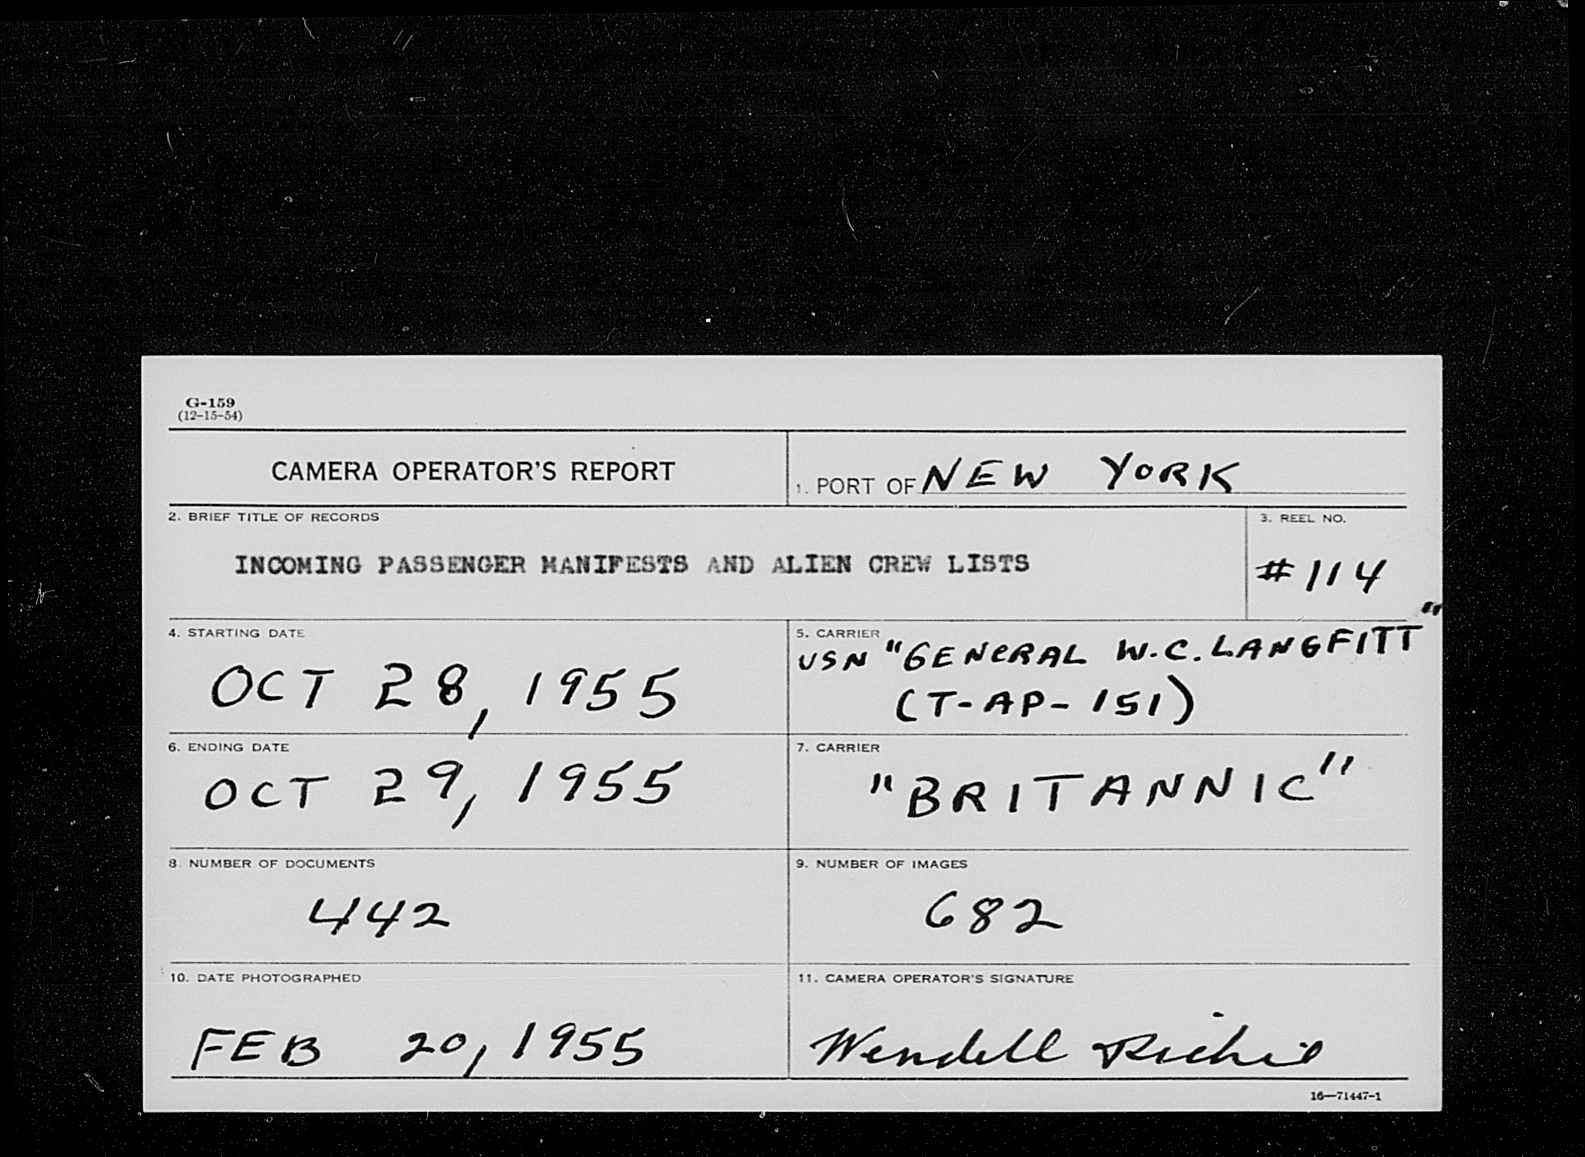 G-159
(12-15-54)
CAMERA OPERATOR'S REPORT
1. PORT OF NEW YORK
2. BRIEF TITLE OF RECORDS
INCOMING PASSENGER MANIFESTS AND ALIEN CREW LISTS
3. REEL NO.
#114
4. STARTING DATE
OCT 28, 1955
5. CARRIER
USN "GENERAL W.C. LANGFITT"
(T-AP-151)
6. ENDING DATE
OCT 29, 1955
7. CARRIER
"BRITANNIC"
8. NUMBER OF DOCUMENTS
442
9. NUMBER OF IMAGES
682
10. DATE PHOTOGRAPHED
FEB 20, 1955
11. CAMERA OPERATOR'S SIGNATURE
Wendell Richie
16—71447-1